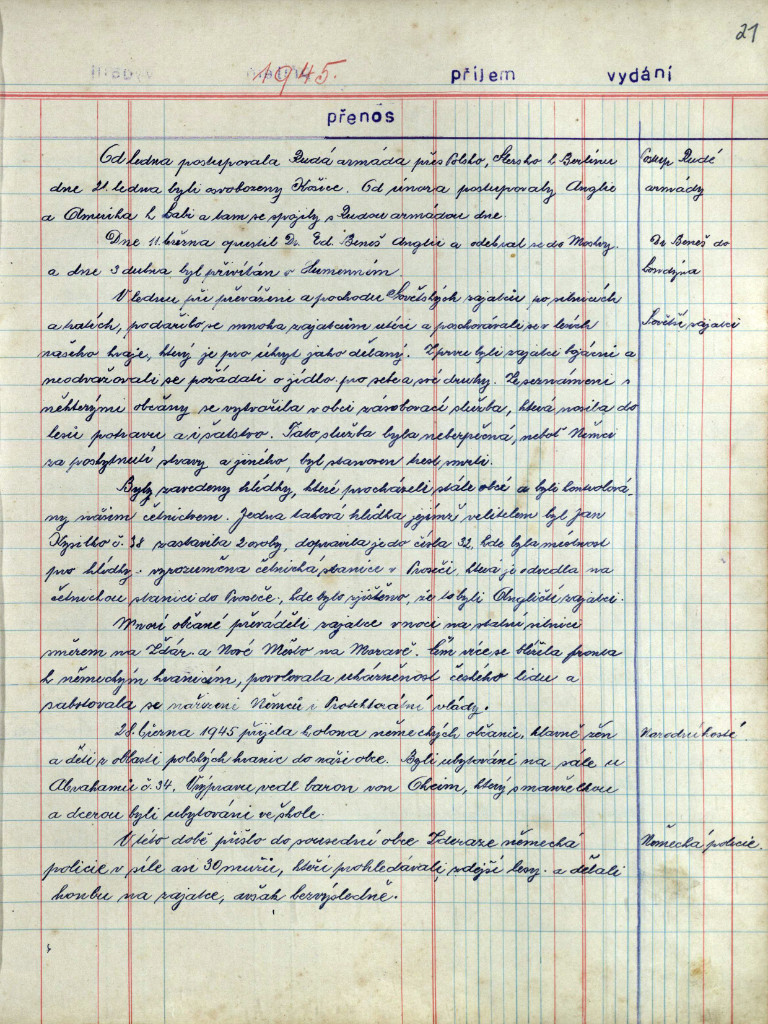 21
1945.
příjem vydání
přenos
Od ledna postupovala Rudá armáda přes Polsko, Slersko k Berlínu
Postup Rudé
dne 21. ledna byli osvobozeny Košice. Od února postupovaly Anglie
armády
a Amerika k Labi a tam se spojily s Rudou armádou dne.
Dne 11. března opustil Dr. Ed. Beneš Anglii a odebral se do Moskvy.
Dr Beneš do
a dne 3 dubna byl přivítán v Humenném.
Londýna
V lednu při převážení a pochodu Sovětských zajatců po silnicích
a tratích, podařilo se mnoha zajatcům utéci a poschovávali se v lesích
Sovětští zajatci
našeho kraje, který je pro úkryt jako dělaný. Zprvu byli zajatci bojácní a
neodvažovali se požádati o jídlo pro sebe a své druhy. Ze seznámení s
některými občany se vytvořila v obci zásobovací služba, která nosila do
lesů potravu a i šatstvo. Tato služba byla nebezpečná, neboť Němci
za poskytnutí stravy a jiného, byl stanoven trest smrti.
Byly zavedeny hlídky, které procházeli stále obcí a byli kontrolová-
ny naším četnictvem. Jedna taková hlídka jejímž velitelem byl Jan
Kysilko č. 38 zastavila 2 osoby, dopravila je do čísla 32, kde byla místnost
pro hlídky. vyrozuměna četnická stanice v Proseči, která je odvedla na
četnickou stanici do Proseče, kde bylo zjištěno, že to byli Angličtí zajatci.
Mnozí občané převáděli zajatce v noci na statní silnice
směrem na Žďár a Nové Město na Moravě. Čím více se blížila fronta
k německým hranicím, povolovala ukázněnost českého lidu a
sabotovala se nařízení Němců i Protektorátní vlády.
28. března 1945 přijela kolona německých občanů, hlavně žen
Národní hosté.
a dětí z oblasti polských hranic do naší obce. Byli ubytováni na sále u
Abrahamů č. 34. Výpravu vedl baron von Cheim, který s manželkou
a dcerou byli ubytováni ve škole.
V této době přišlo do sousední obce Zderaze německá
Německá policie.
policie v síle asi 30 mužů, kteří prohledávali zdejší lesy. a dělali
honbu na zajatce, avšak bezvýsledně.